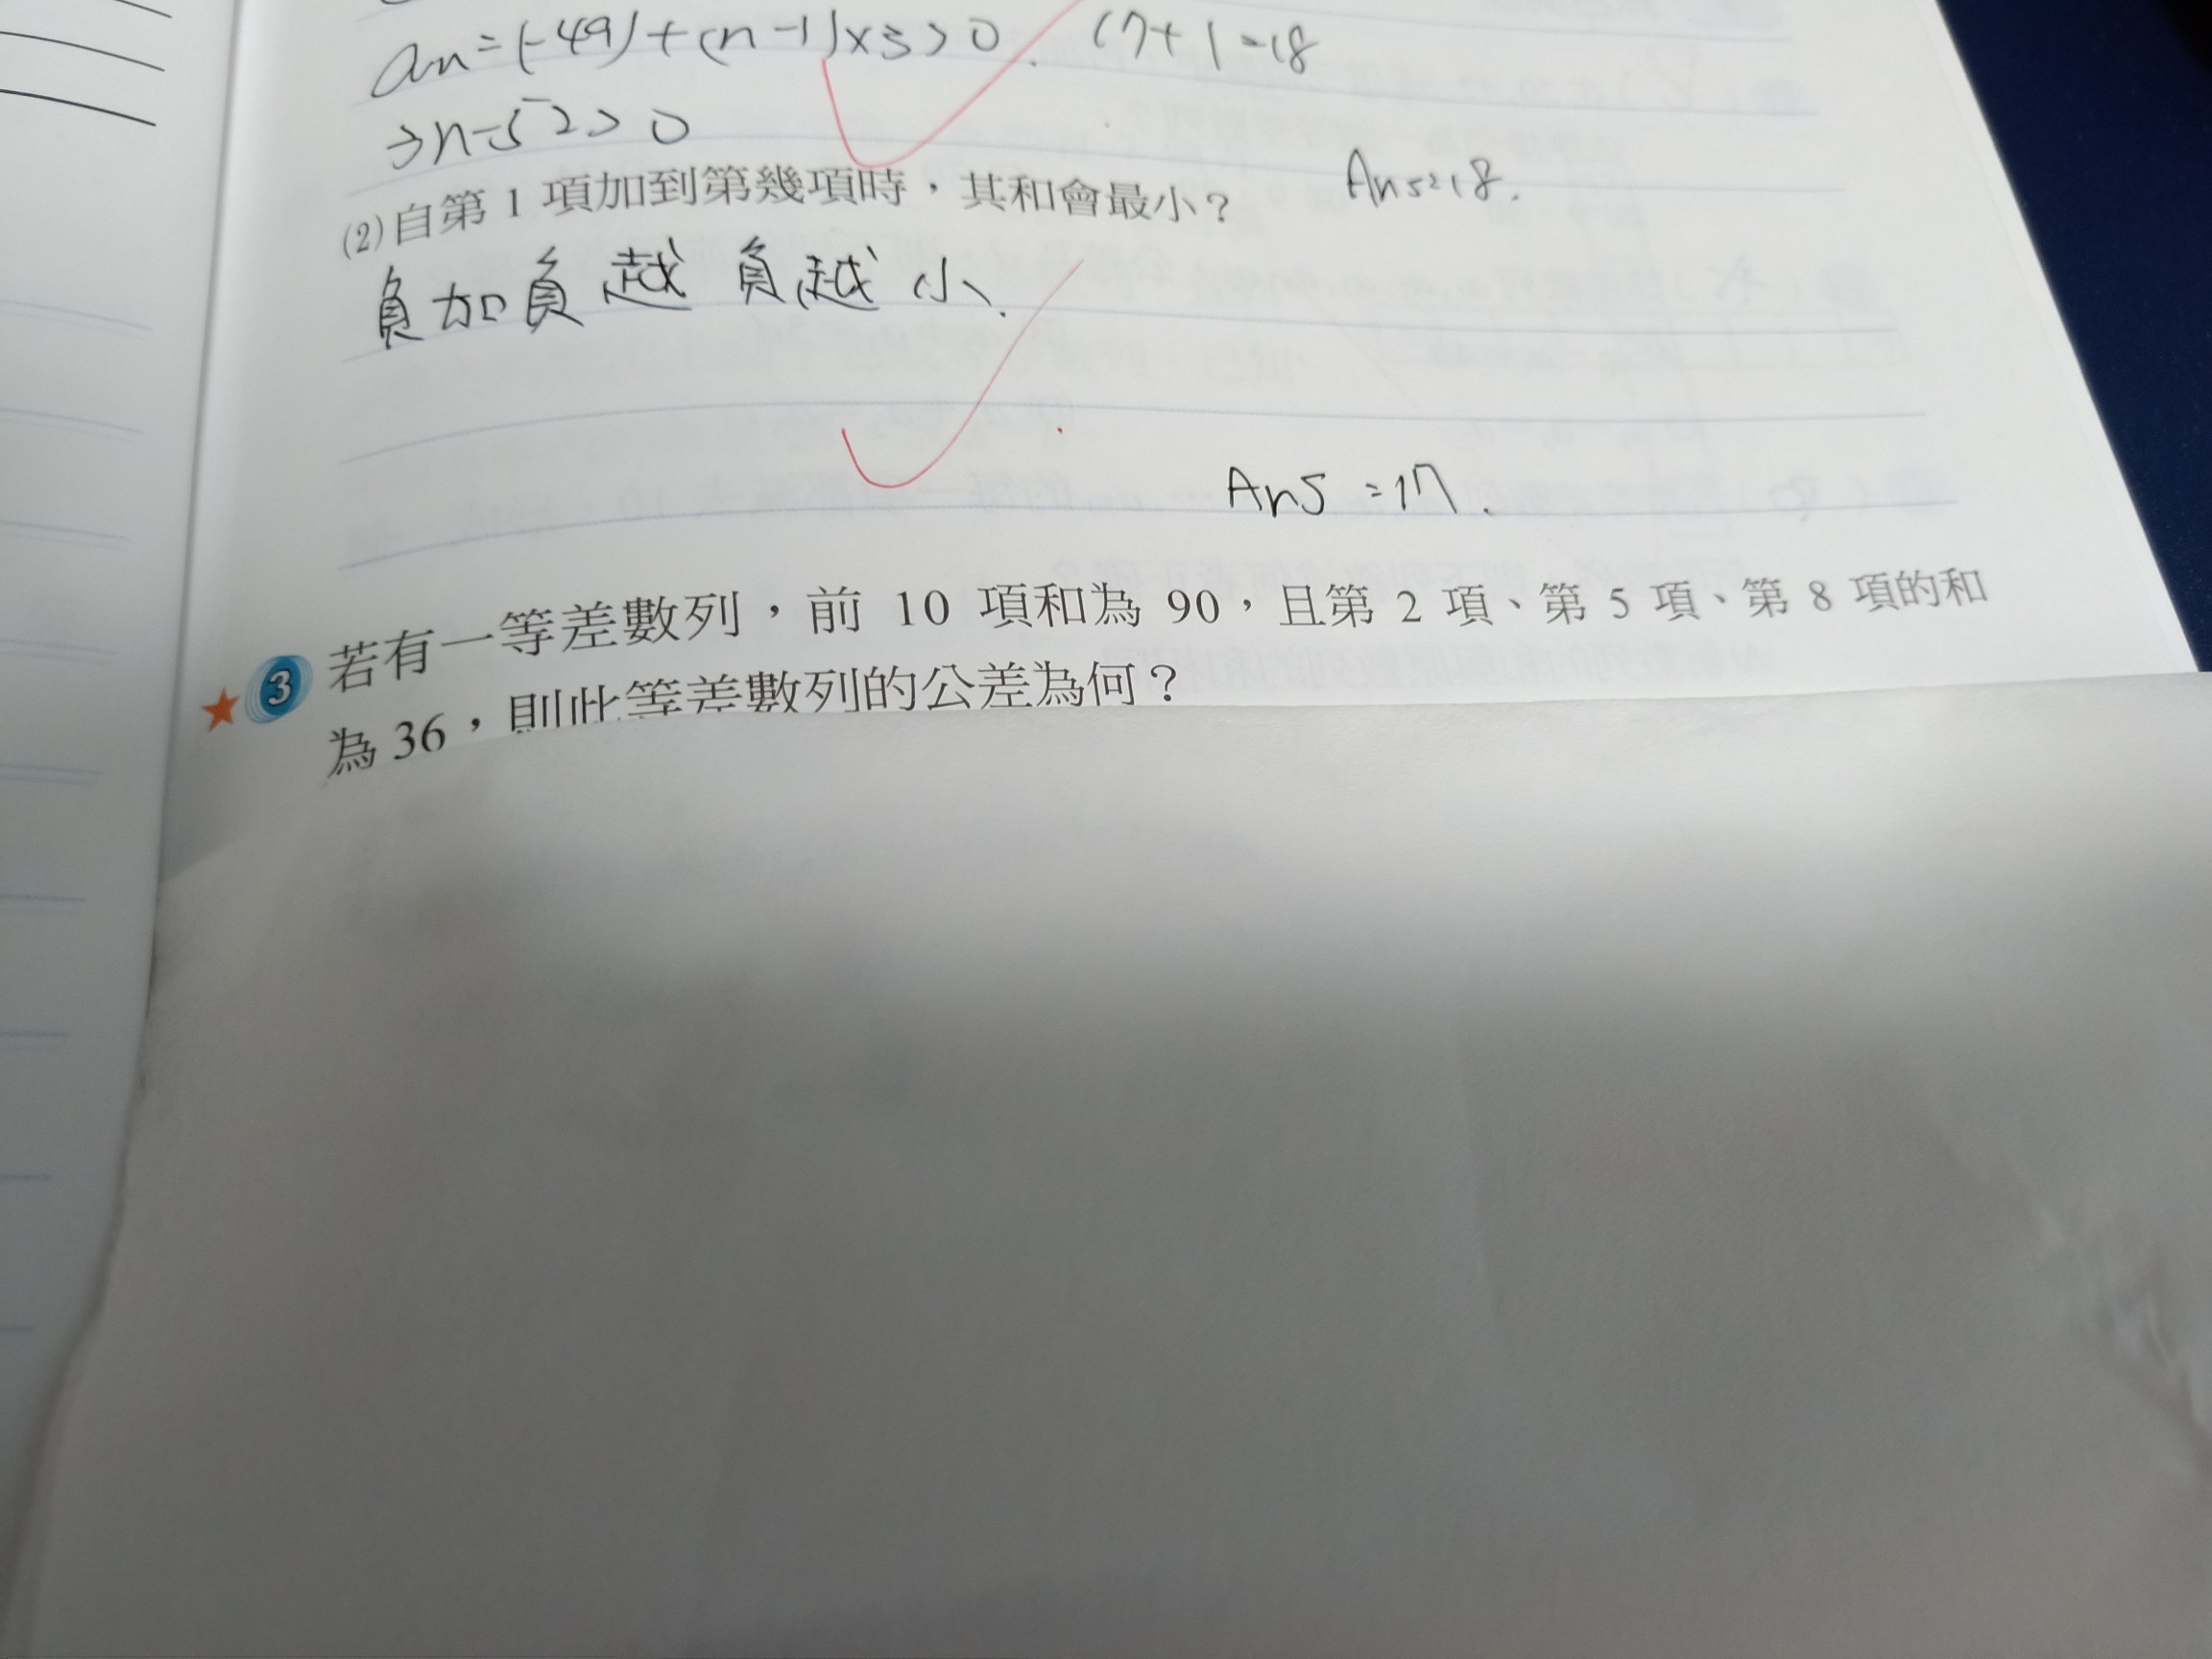 an=(-49)+(n-1)×3>0. 17+1=18
3n-52>0
(2)自第 1 項加到第幾項時，其和會最小？
Ans=18.
負加負越負越小.
Ans=17.
★ 3 若有一等差數列，前 10 項和為 90，且第 2 項、第 5 項、第 8 項的和
為 36，則此等差數列的公差為何？